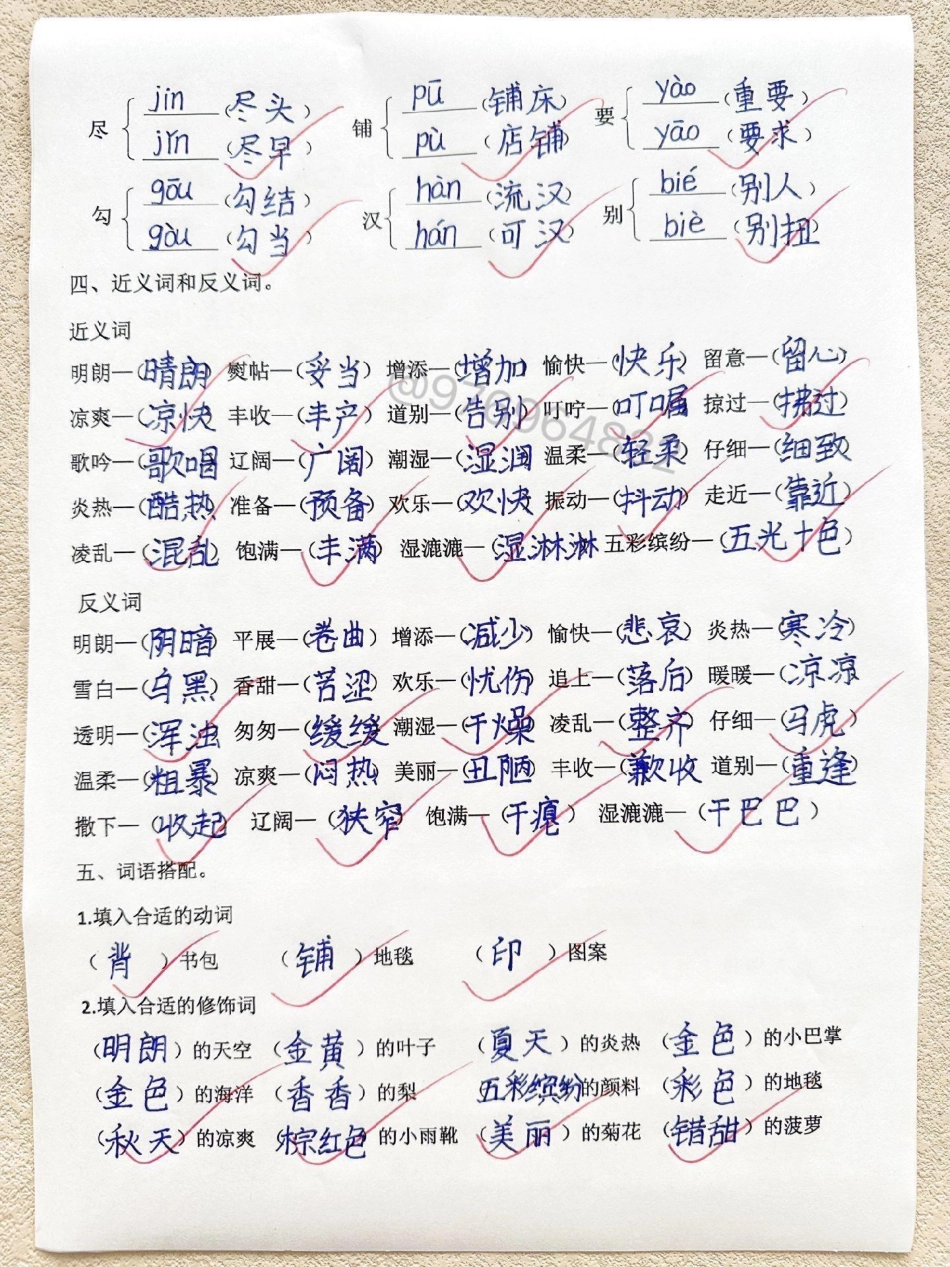 尽 jìn (尽头) 铺 pū (铺床) 要 yào (重要)
jǐn (尽早) pù (店铺) yāo (要求)
勾 gōu (勾结) 汉 hàn (流汉) 别 bié (别人)
gòu (勾当) hán (可汉) biè (别扭)
四、近义词和反义词。
近义词
明朗—(晴朗) 熨帖—(妥当) 增添—(增加) 愉快—(快乐) 留意—(留心)
凉爽—(凉快) 丰收—(丰产) 道别—(告别) 叮咛—(叮嘱) 掠过—(拂过)
歌吟—(歌唱) 辽阔—(广阔) 潮湿—(湿润) 温柔—(轻柔) 仔细—(细致)
炎热—(酷热) 准备—(预备) 欢乐—(欢快) 振动—(抖动) 走近—(靠近)
凌乱—(混乱) 饱满—(丰满) 湿漉漉—(湿淋淋) 五彩缤纷—(五光十色)
反义词
明朗—(阴暗) 平展—(卷曲) 增添—(减少) 愉快—(悲哀) 炎热—(寒冷)
雪白—(乌黑) 香甜—(苦涩) 欢乐—(忧伤) 追上—(落后) 暖暖—(凉凉)
透明—(浑浊) 匆匆—(缓缓) 潮湿—(干燥) 凌乱—(整齐) 仔细—(马虎)
温柔—(粗暴) 凉爽—(闷热) 美丽—(丑陋) 丰收—(歉收) 道别—(重逢)
撒下—(收起) 辽阔—(狭窄) 饱满—(干瘪) 湿漉漉—(干巴巴)
五、词语搭配。
1.填入合适的动词
(背)书包 (铺)地毯 (印)图案
2.填入合适的修饰词
(明朗)的天空 (金黄)的叶子 (夏天)的炎热 (金色)的小巴掌
(金色)的海洋 (香香)的梨 (五彩缤纷)的颜料 (彩色)的地毯
(秋天)的凉爽 (棕红色)的小雨靴 (美丽)的菊花 (错甜)的菠萝